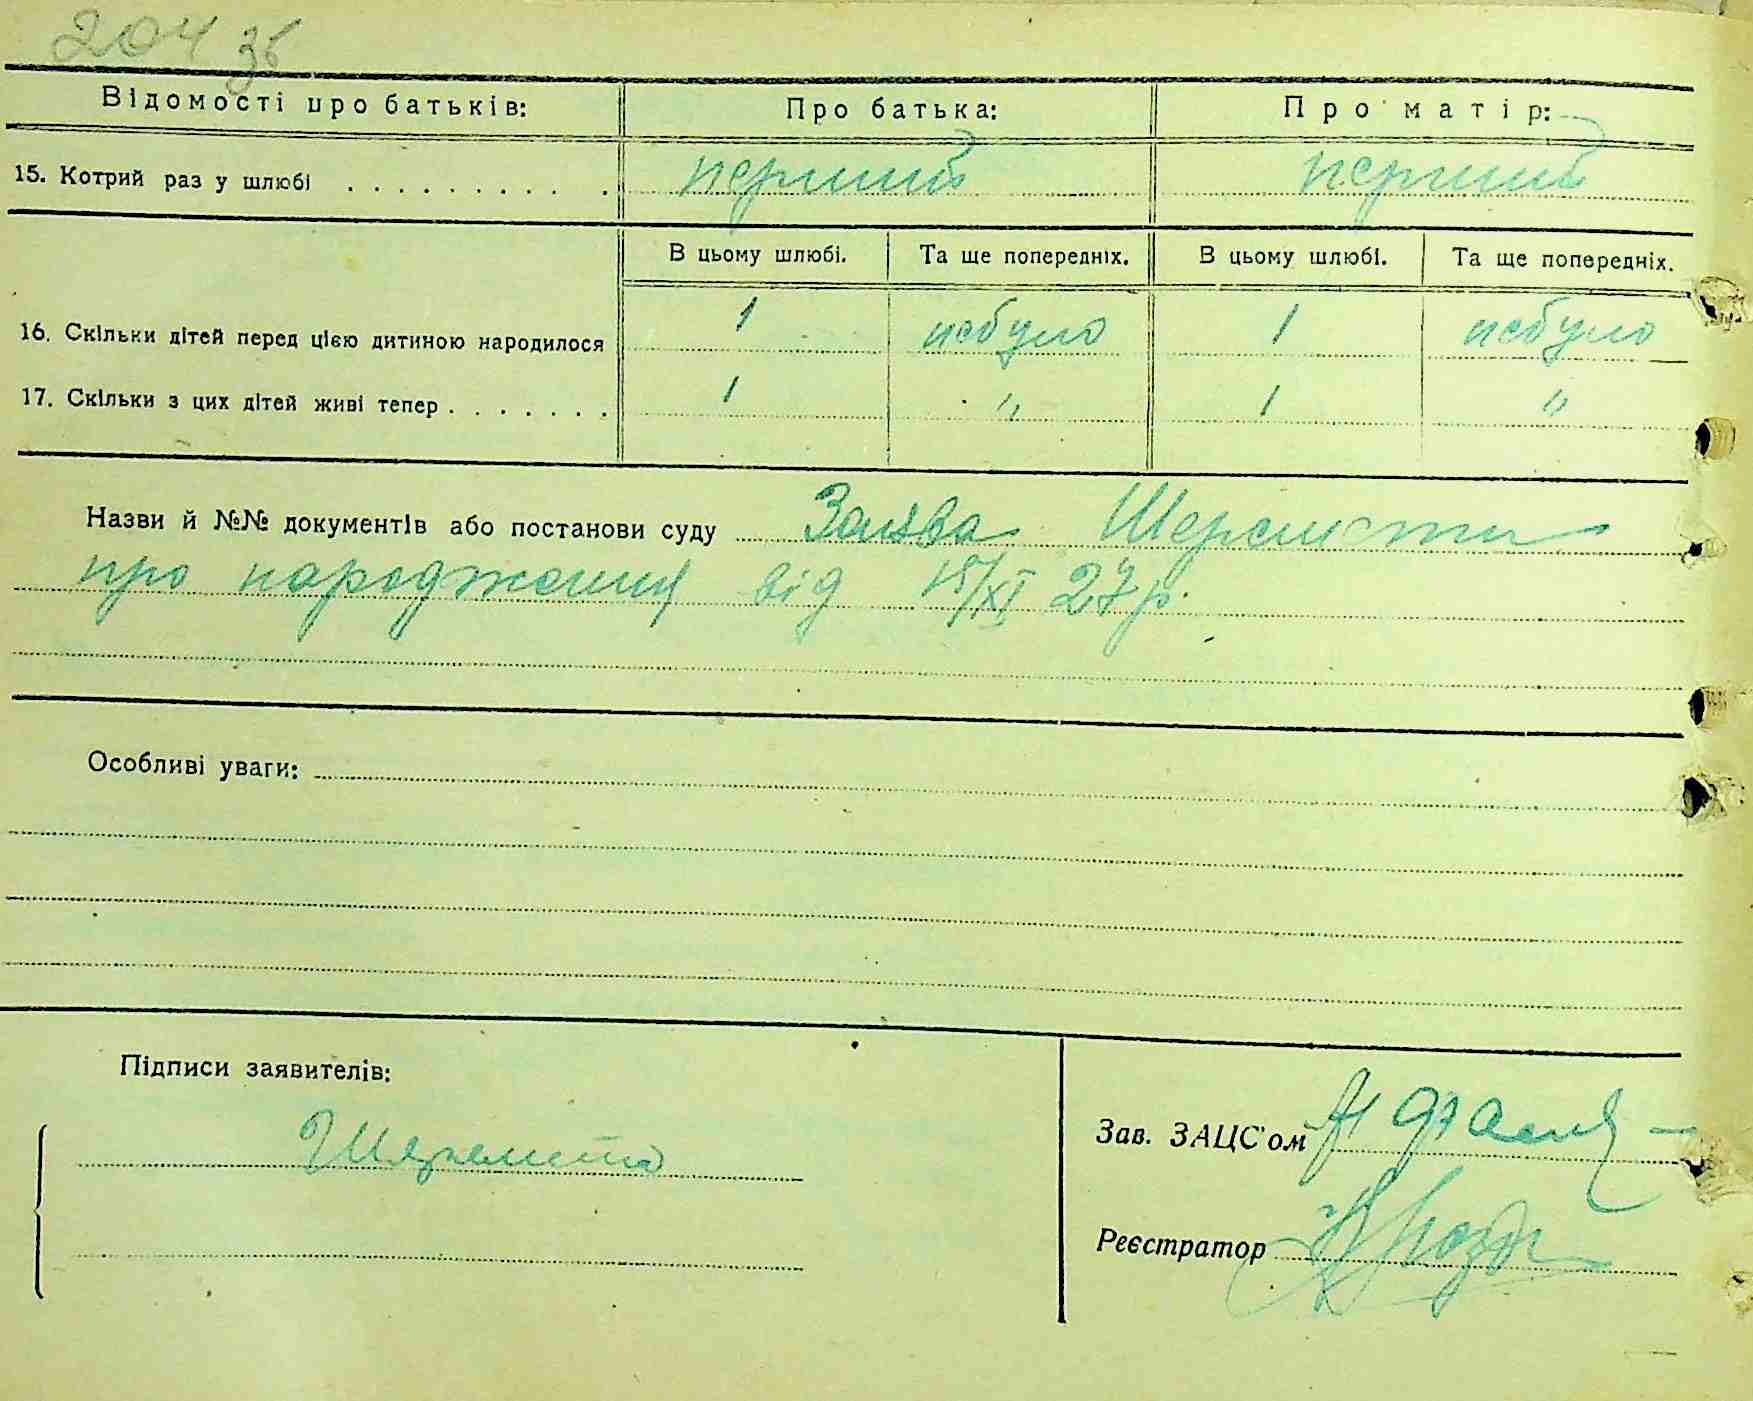 204 зв
Відомості про батьків: Про батька: Про матір:
15. Котрий раз у шлюбі . . . . . . . . . . перший перший
В цьому шлюбі. Та ще попередніх. В цьому шлюбі. Та ще попередніх.
16. Скільки дітей перед цією дитиною народилося 1 небуло 1 небуло
17. Скільки з цих дітей живі тепер . . . . . . . 1 " 1 "
Назви й №№ документів або постанови суду Заява Шеремети
про народження від 15/XI 27 р.
Особливі уваги:
Підписи заявителів:
Шеремета
Зав. ЗАЦС'ом
Реєстратор